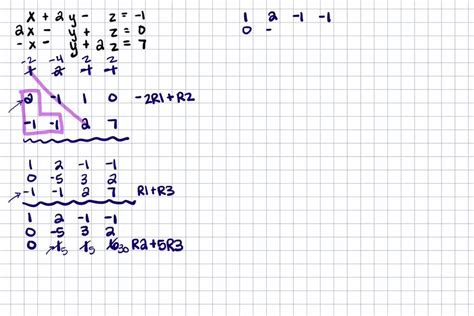 x + 2y - z = -1
2x - y + z = 0
-x - y + 2z = 7
-2 -4 2 2
1 2 -1 -1
2 -1 1 0 -2R1+R2
-1 -1 2 7
1 2 -1 -1
0 -5 3 2
-1 -1 2 7 R1+R3
1 2 -1 -1
0 -5 3 2
0 1 5 1 5 6 30 R2+5R3
1 2 -1 -1
0 -